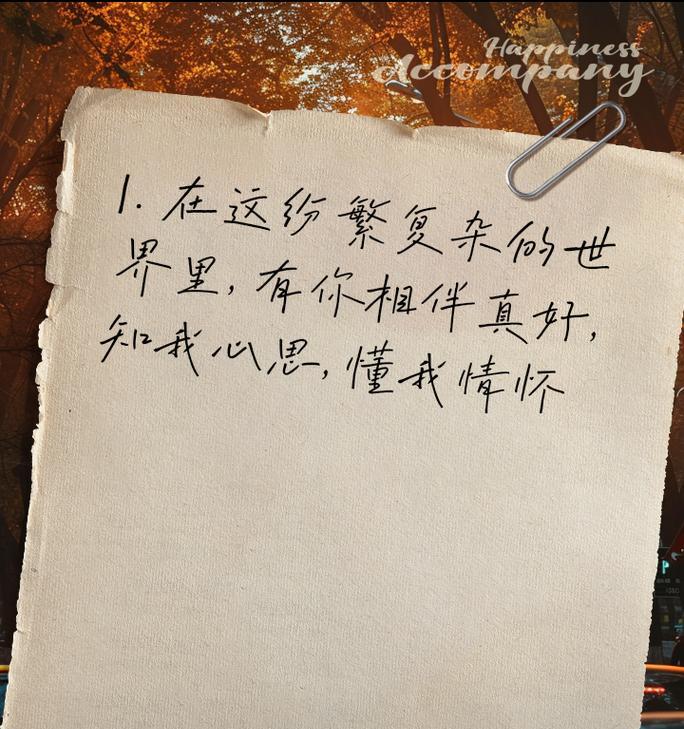 Happiness
Accompany
1. 在这纷繁复杂的世
界里,有你相伴真好,
知我心思,懂我情怀